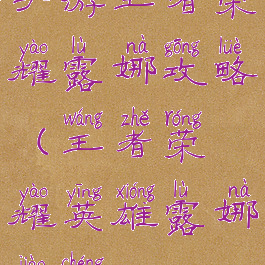 游 王 者 荣
yào lù nà gōng lüè
耀 露 娜 攻 略
wáng zhě róng
( 王 者 荣
yào yīng xióng lù nà
耀 英 雄 露 娜
jiào chéng